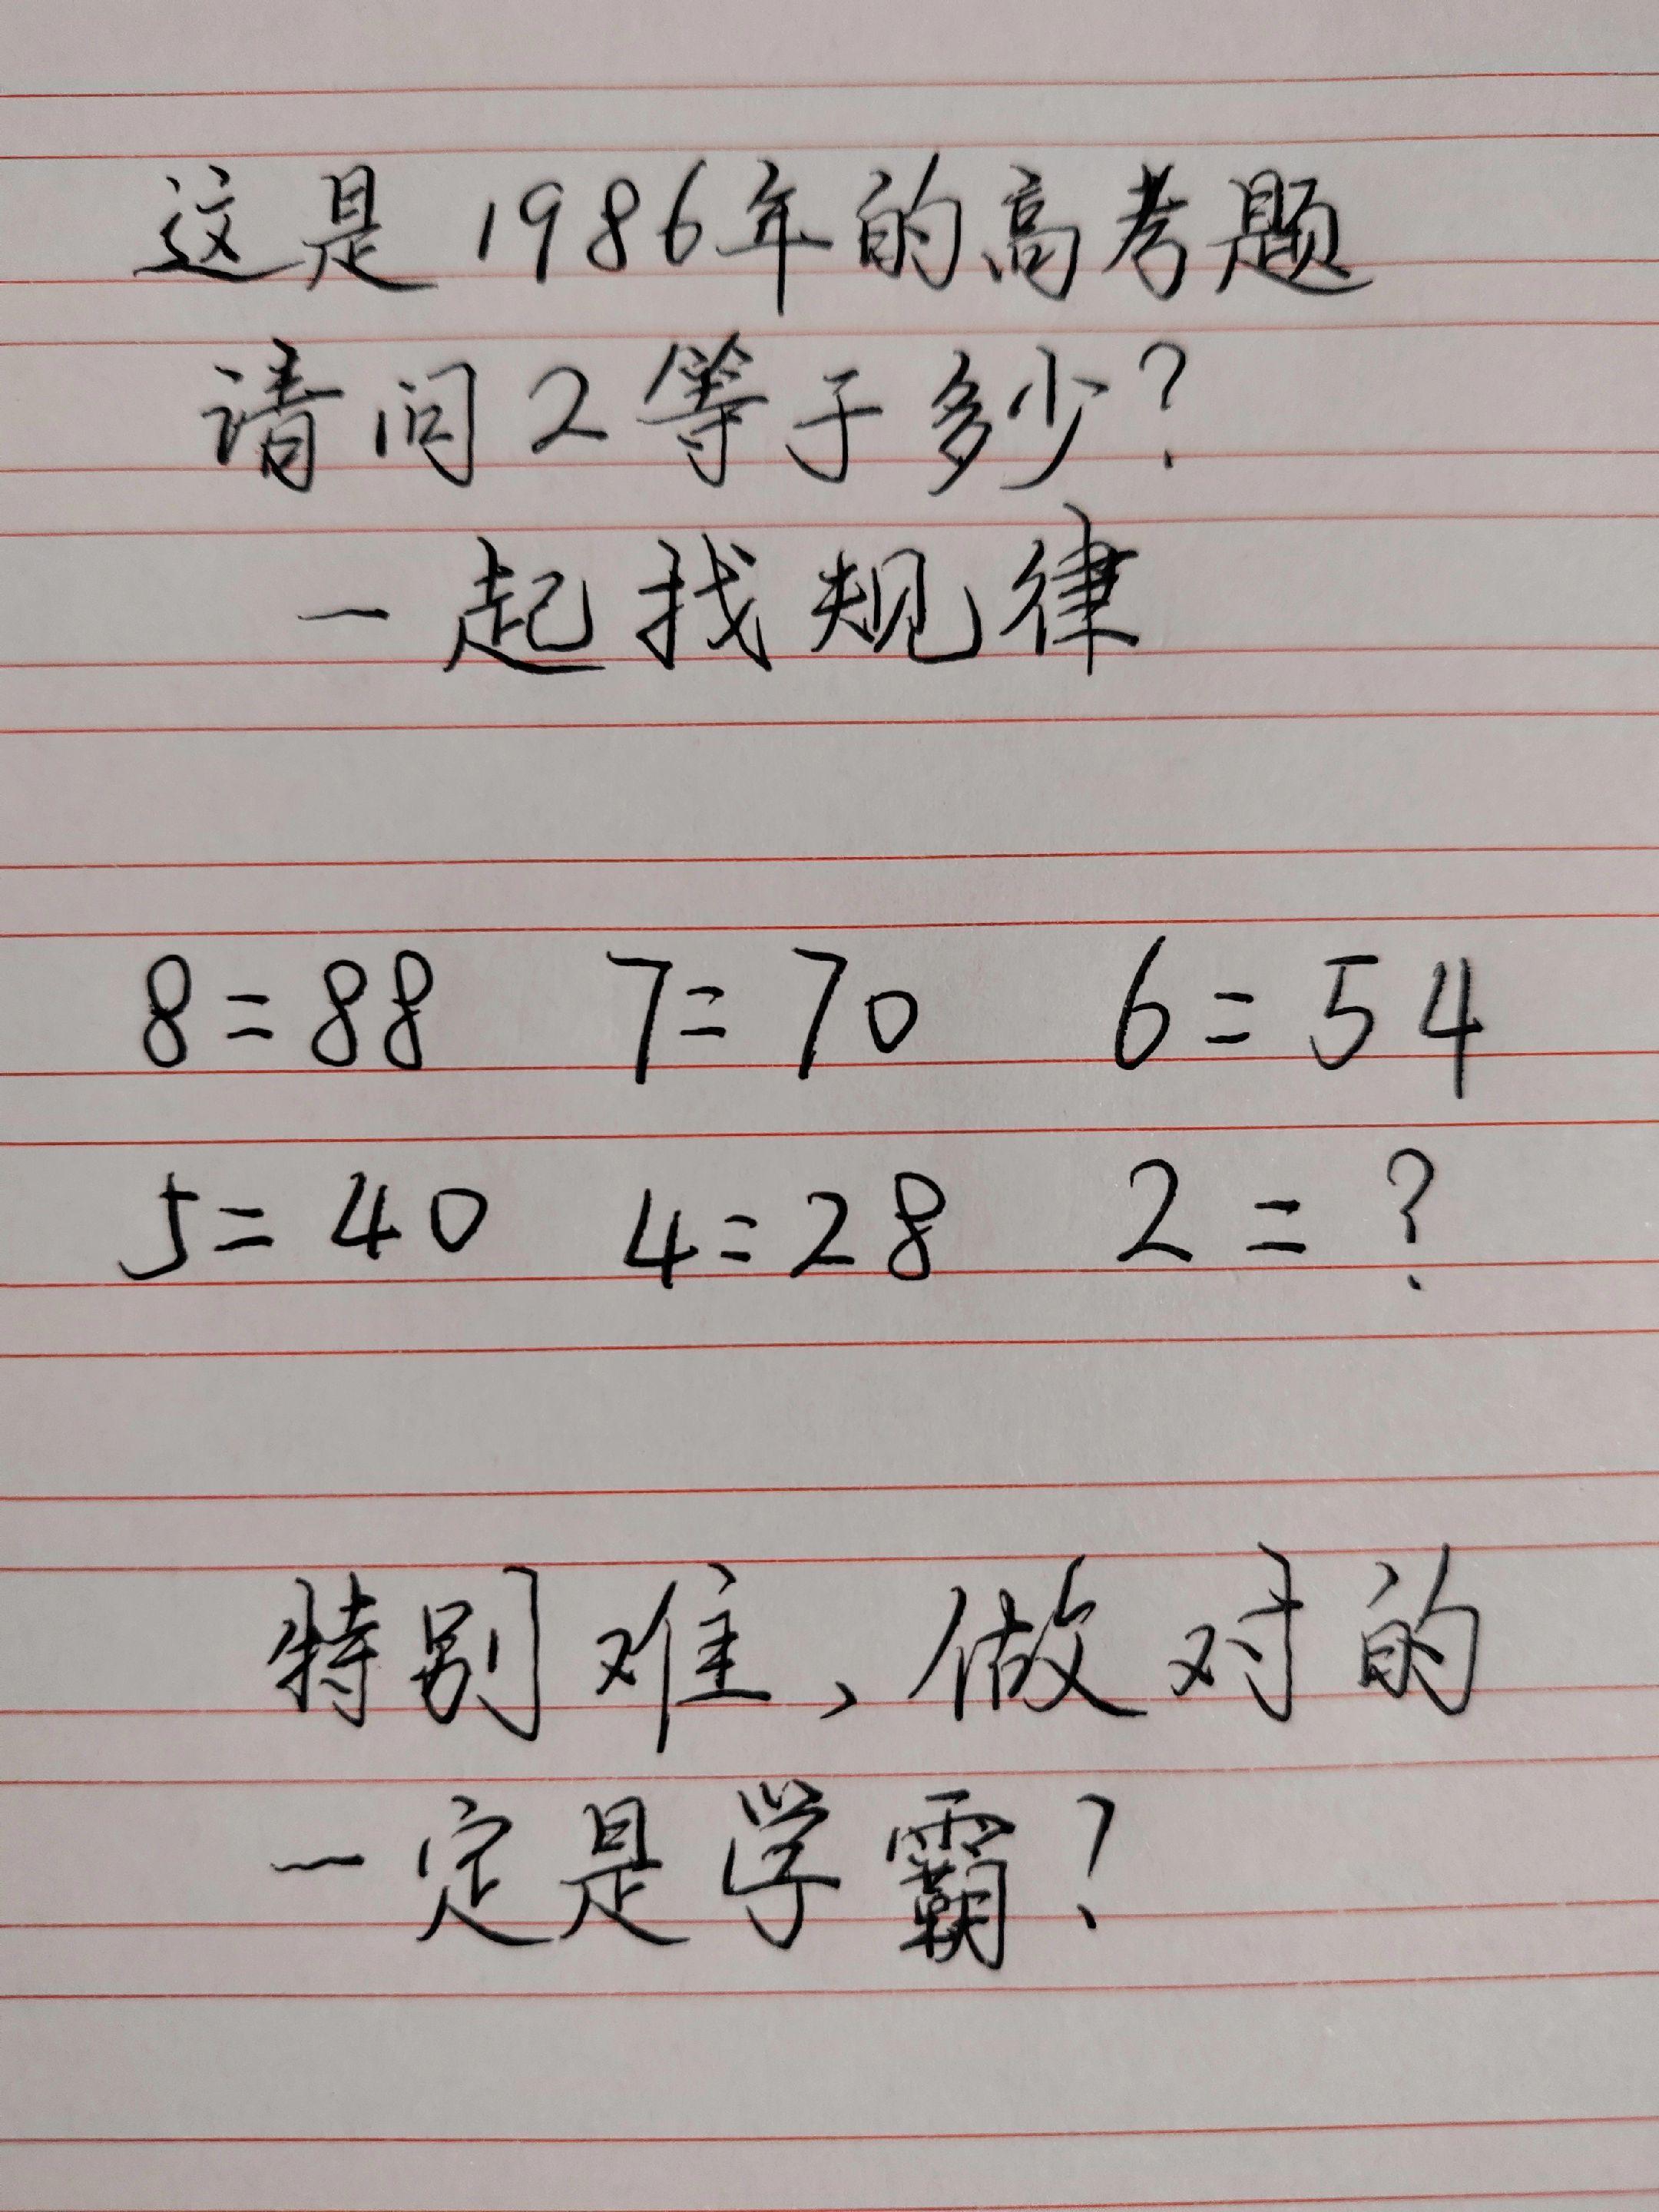 这是1986年的高考题
请问2等于多少?
一起找规律
8=88 7=70 6=54
5=40 4=28 2=?
特别难、做对的
一定是学霸?